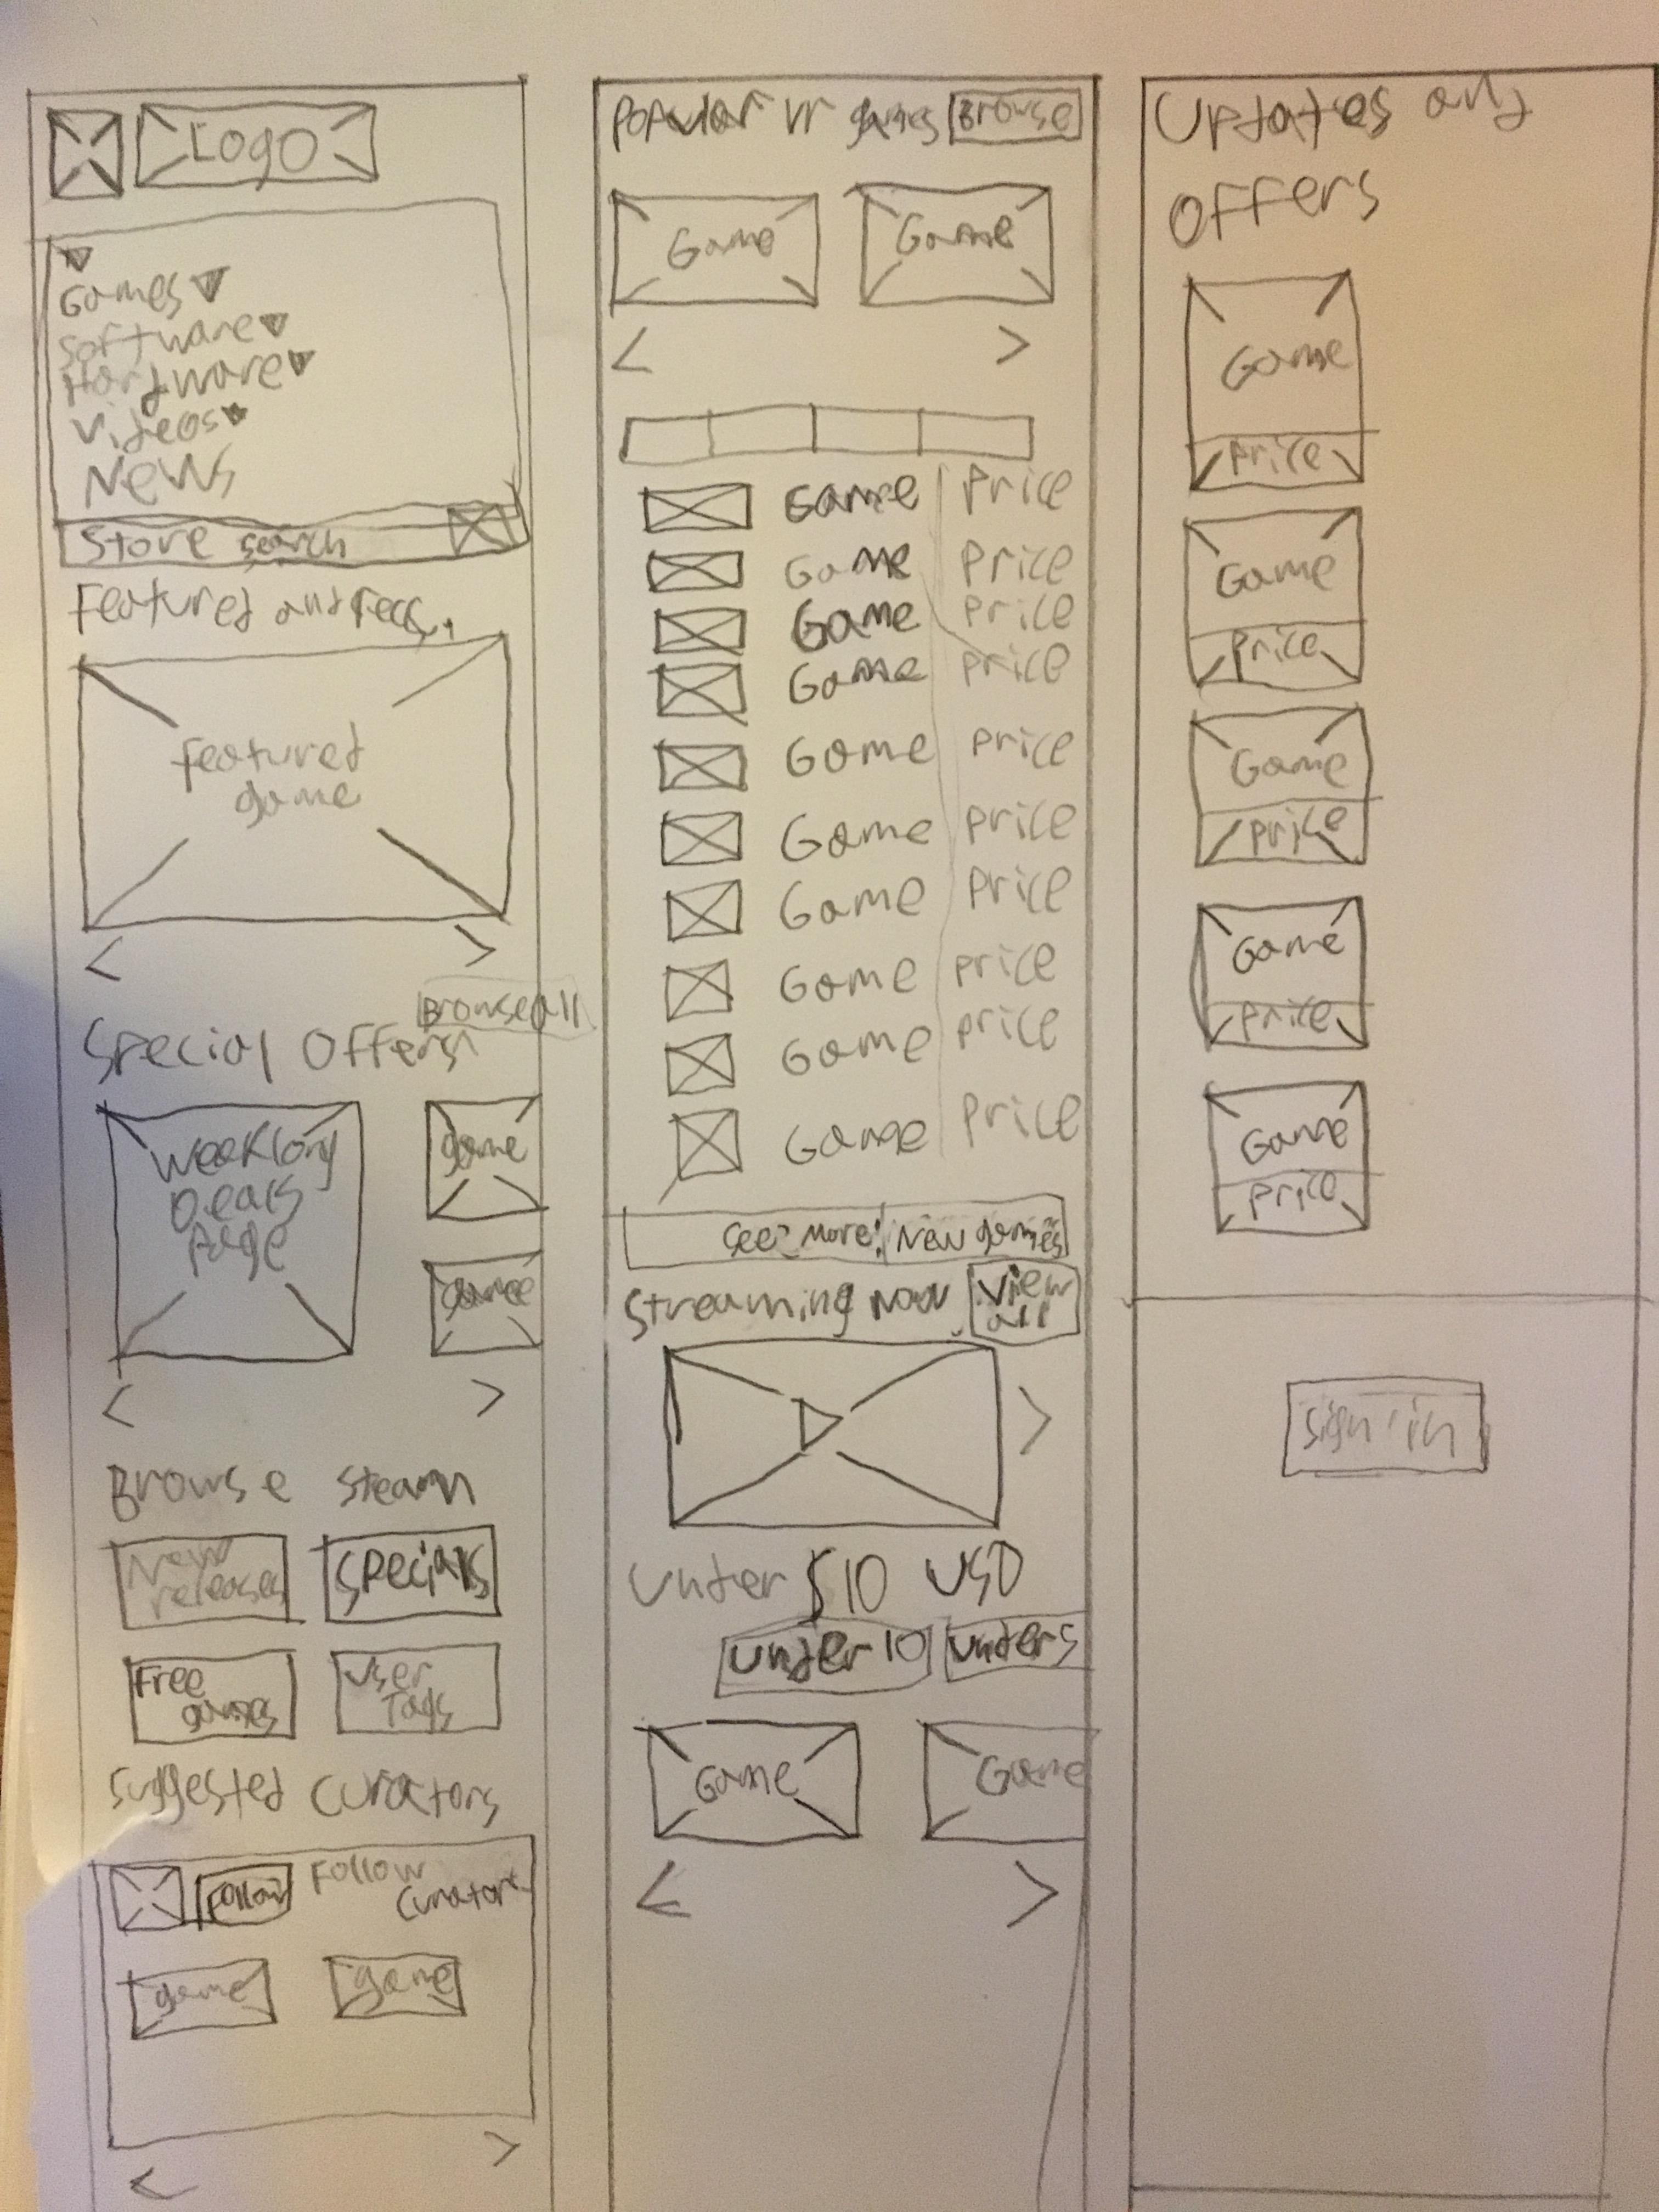 Logo
Games
Software
Hardware
Videos
News
Store search
Featured and recs..
Featured
game
Browse all
Special Offers
Weeklong
Deals
Page
game
game
Browse Steam
New
releases
Specials
Free
games
User
Tags
Suggested Curators
Follow
Follow
Curators
game
game
Popular vr games Browse
Game
Game
Game Price
Game Price
Game Price
Game Price
Game Price
Game Price
Game Price
Game Price
Game Price
Game Price
See more: New games
Streaming now
View
all
Under $10 USD
Under 10
Under 5
Game
Game
Updates and
Offers
Game
Price
Game
Price
Game
Price
Game
Price
Game
Price
Sign in